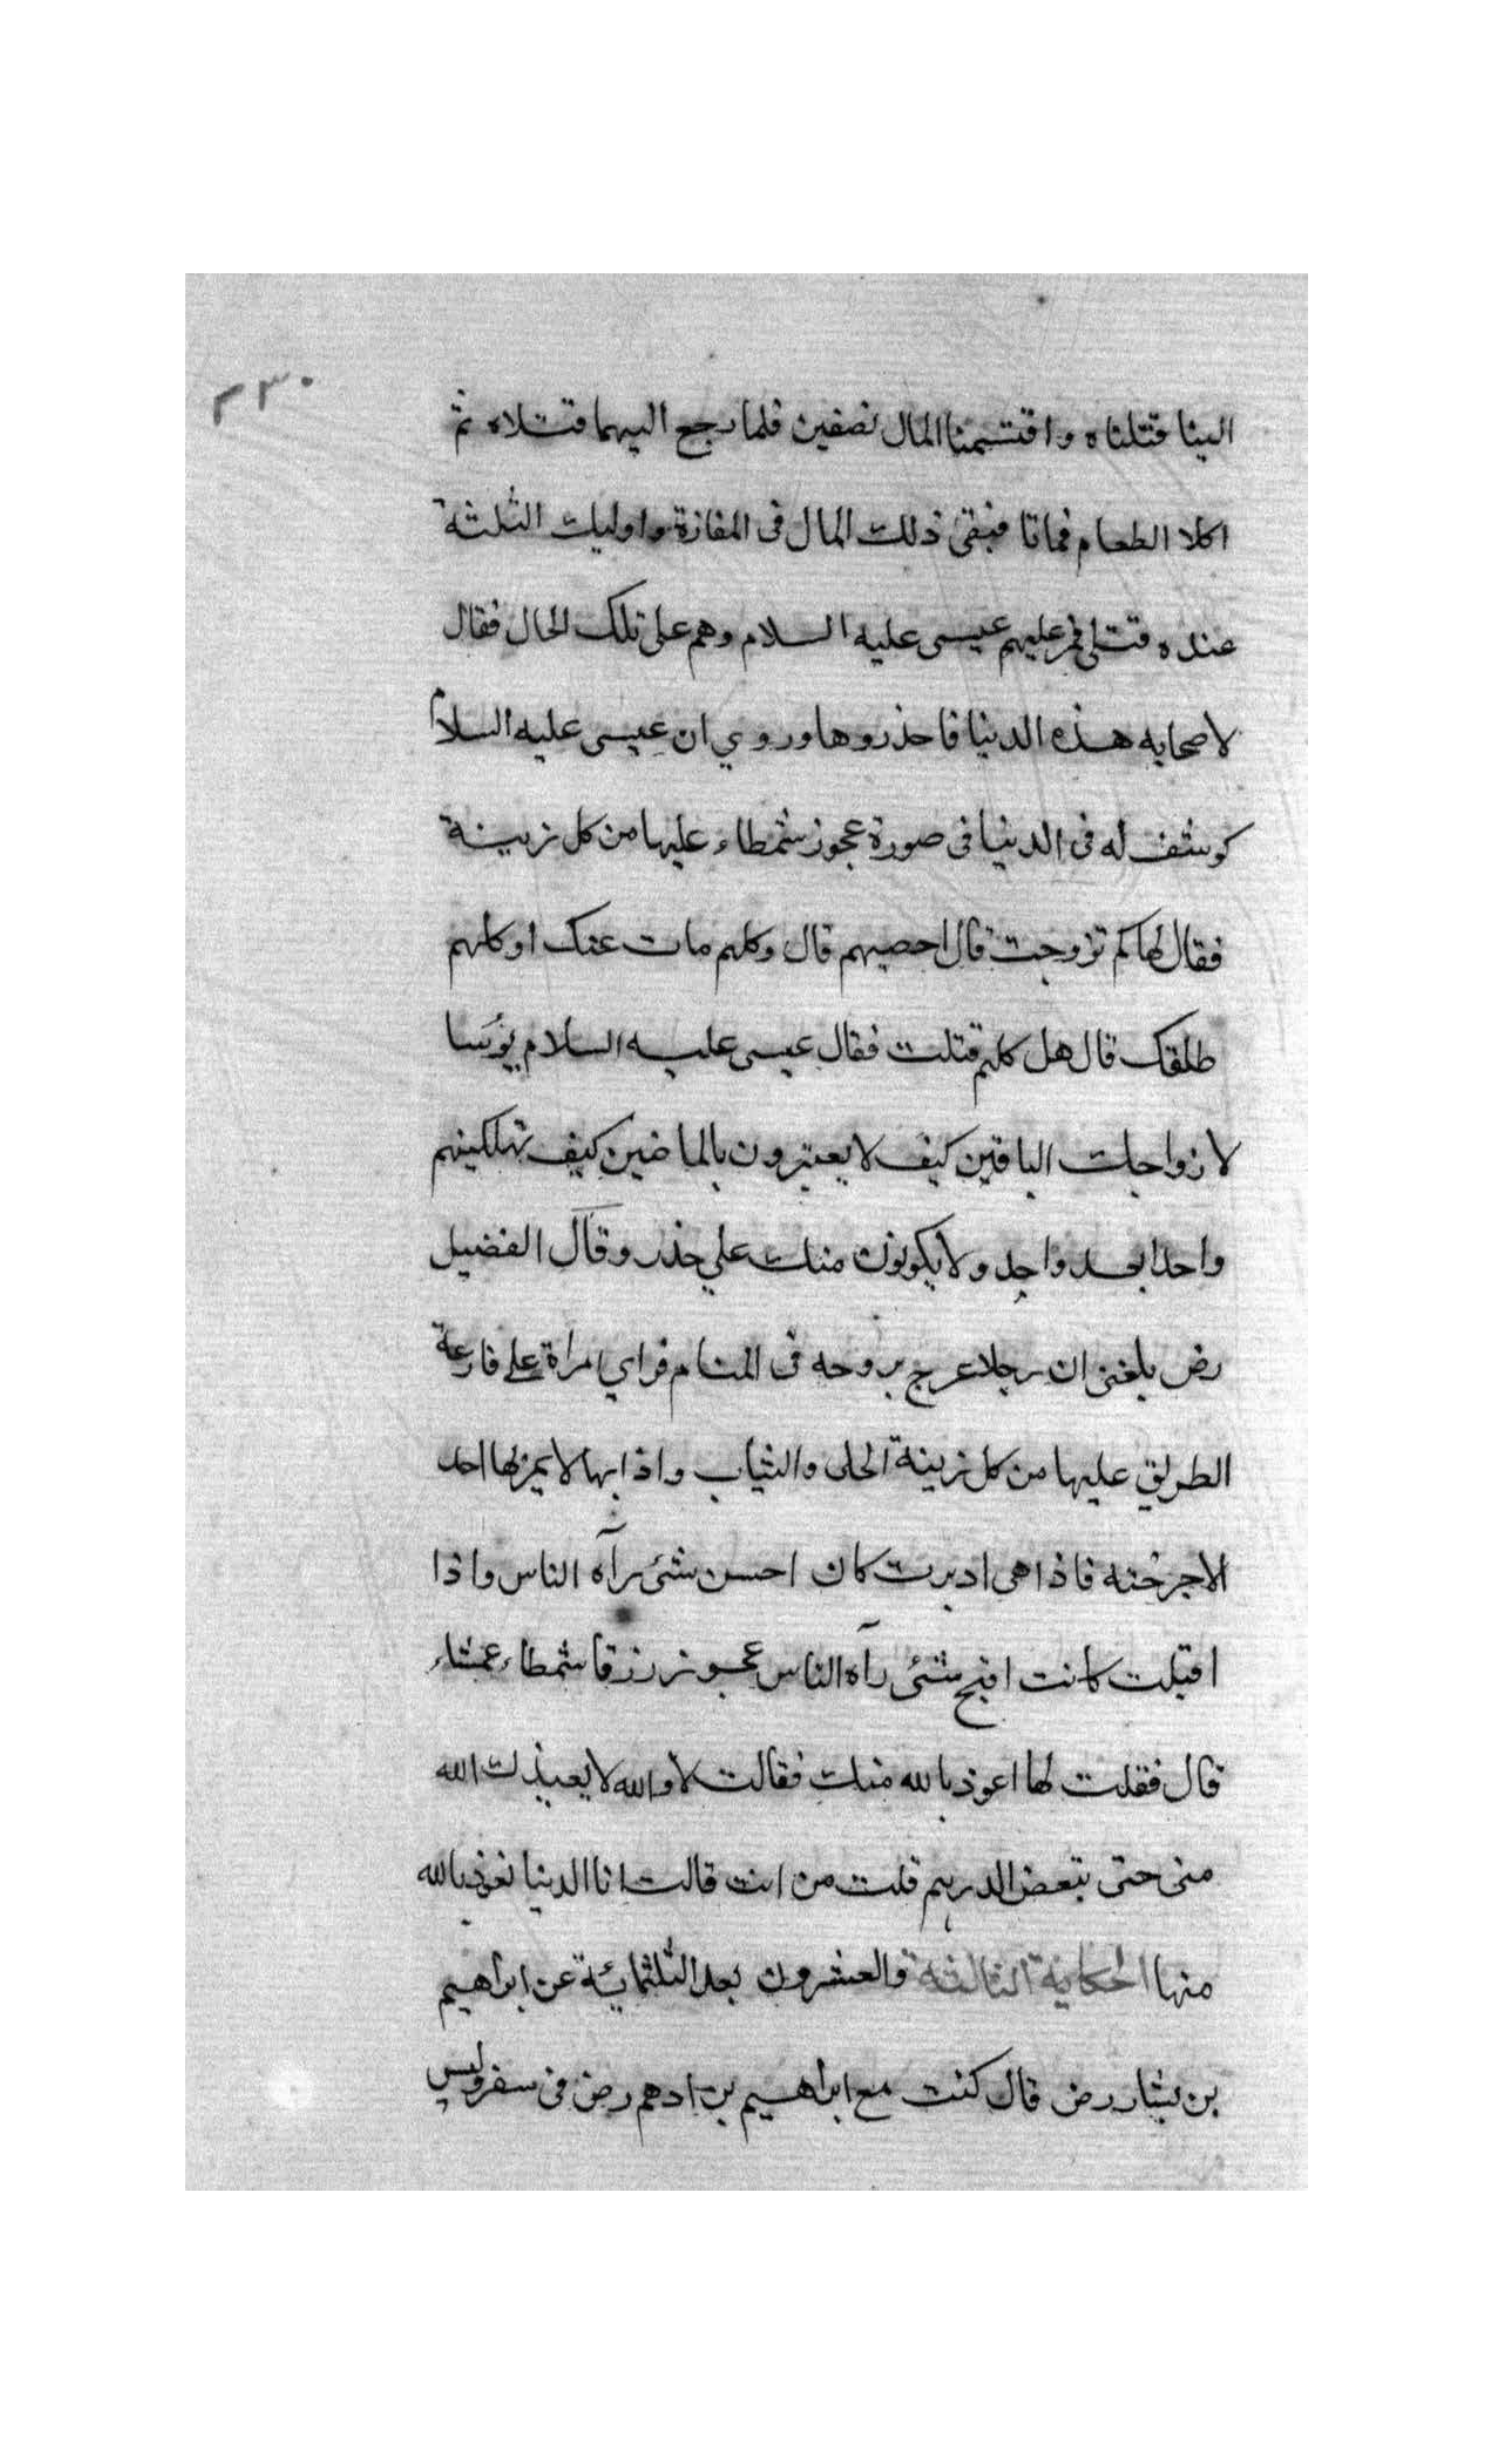 ٢٣٠
الينا قتلناه واقتسمنا المال نصفين فلما رجع اليهما قتلاه ثم
اكلا الطعام فماتا فبقى ذلك المال فى المفازة واوليك الثلثة
عنده قتلى فمر عليهم عيسى عليه السلام وهم على تلك الحال فقال
لاصحابه هذه الدنيا فاحذروها وروي ان عيسى عليه السلام
كوشف له فى الدنيا فى صورة عجوز شمطاء عليها من كل زينة
فقال لها كم تزوجت قال احصيهم قال وكلهم مات عنك او كلهم
طلقك قال هل كلهم قتلت فقال عيسى عليه السلام بؤسا
لازواجك الباقين كيف لا يعتبرون بالماضين كيف تهلكينهم
واحدا بعد واحد ولا يكونون منك علي حذر وقال الفضيل
رض بلغنى ان رجلا عرج بروحه فى المنام فراي امراة على قارعة
الطريق عليها من كل زينة الحلى والثياب واذا بها لا يمر لها احد
الا جرحته فاذا هى ادبرت كان احسن شئ رآه الناس واذا
اقبلت كانت اقبح شئى رآه الناس عجوز زرقا شمطاء عمشاء
قال فقلت لها اعوذ بالله منك فقالت لا والله لا يعيذك الله
منى حتى تبعض الدرهم قلت من انت قالت انا الدنيا نعوذ بالله
منها الحكاية الثالثة والعشرون بعد الثلثمائة عن ابراهيم
بن بشار رض قال كنت مع ابراهيم بن ادهم رض فى سفر وليس